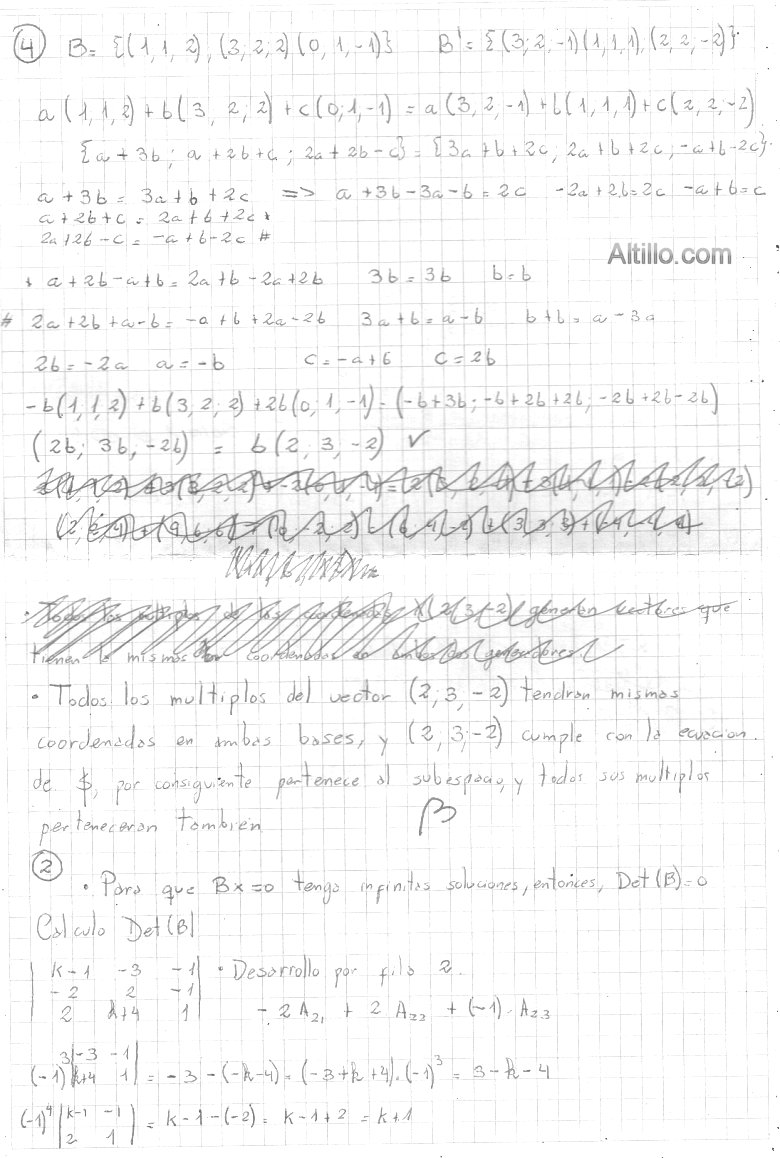 4 B = {(1,1,2),(3,2,2)(0,1,-1)} B' = {(3;2,-1)(1,1,1),(2,2,-2)}
a(1,1,2)+b(3,2,2)+c(0;1,-1) = a(3,2,-1)+b(1,1,1)+c(2,2,-2)
{a+3b; a+2b+c; 2a+2b-c} = {3a+b+2c, 2a+b+2c, -a+b-2c}
a+3b = 3a+b+2c => a+3b-3a-b=2c -2a+2b=2c -a+b=c
a+2b+c = 2a+b+2c *
2a+2b-c = -a+b-2c #
Altillo.com
* a+2b-a+b = 2a+b-2a+2b 3b=3b b=b
# 2a+2b+a-b = -a+b+2a-2b 3a+b=a-b b+b=a-3a
2b=-2a a=-b c=-a+b c=2b
-b(1,1,2)+b(3,2,2)+2b(0;1,-1) = (-b+3b; -b+2b+2b; -2b+2b-2b)
(2b; 3b, -2b) = b(2,3,-2) ✓
• Todos los multiplos del vector (2;3,-2) tendran mismas
coordenadas en ambas bases, y (2,3;-2) cumple con la ecuacion
de $, por consiguiente pertenece al subespacio, y todos sus multiplos
perteneceran tambien
B
2
• Para que Bx=0 tenga infinitas soluciones, entonces, Det(B)=0
Calculo Det(B)
| k-1 -3 -1 | • Desarrollo por fila 2.
| -2 2 -1 |
| 2 k+4 1 | -2 A21 + 2 A22 + (-1)·A23
(-1)^3 | -3 -1 |
| k+4 1 | = -3-(-k-4) = (-3+k+4)·(-1)^3 = 3-k-4
(-1)^4 | k-1 -1 |
| 2 1 | = k-1-(-2) = k-1+2 = k+1